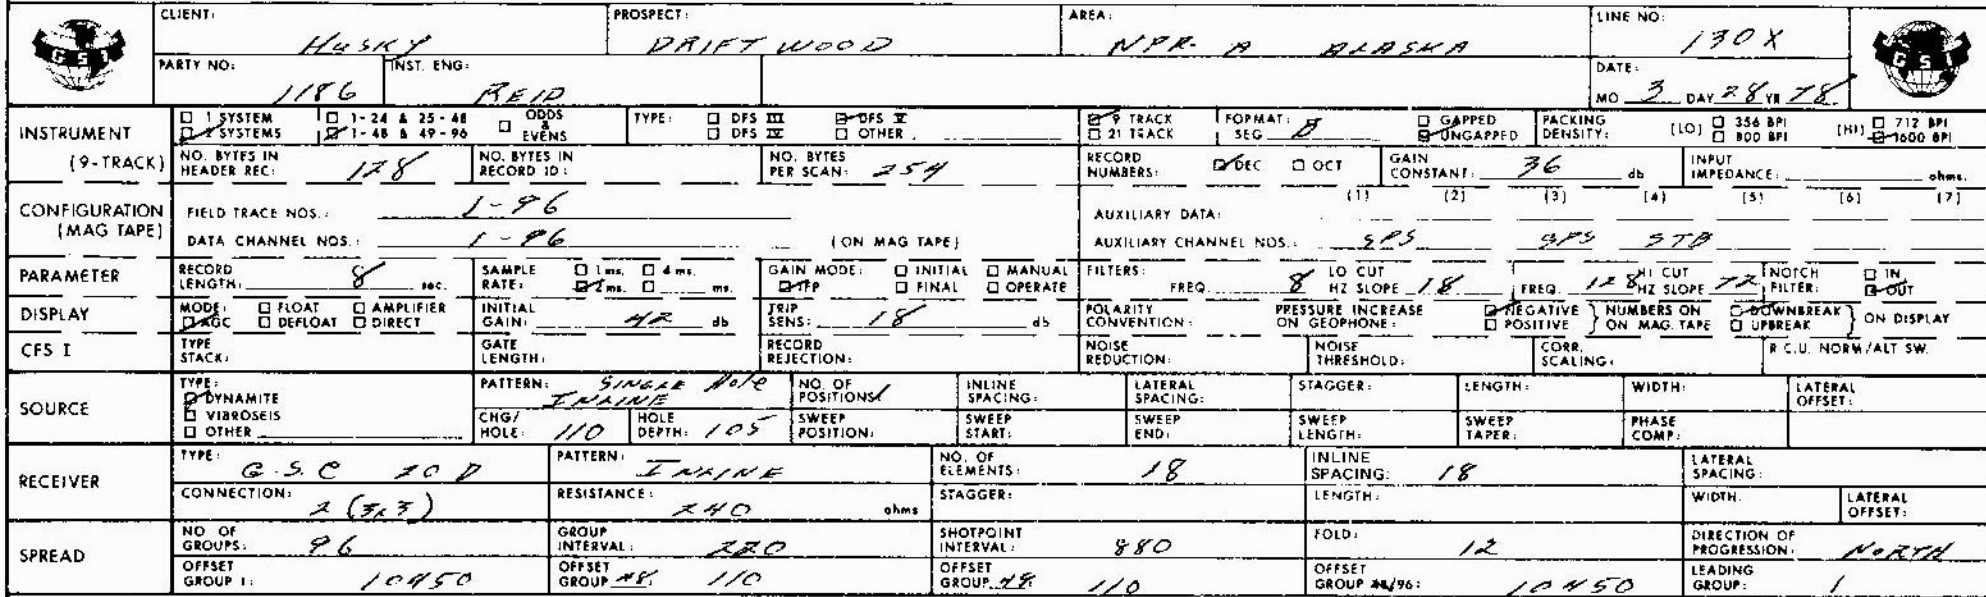 CLIENT: HUSKY PROSPECT: DRIFTWOOD AREA: NPR-A ALASKA LINE NO: 130X
GSI GSI
PARTY NO: 1186 INST. ENG: REID DATE: MO 3 DAY 28 YR 78
INSTRUMENT (9-TRACK)
1 SYSTEM 1-24 & 25-48 ODDS & EVENS TYPE: DFS III DFS V 9 TRACK FORMAT: SEG B GAPPED PACKING DENSITY: (LO) 356 BPI (HI) 712 BPI
SYSTEMS 1-48 & 49-96 DFS IV OTHER 21 TRACK UNGAPPED 800 BPI 1600 BPI
NO. BYTES IN HEADER REC: 128 NO. BYTES IN RECORD ID: NO. BYTES PER SCAN: 254 RECORD NUMBERS: DEC OCT GAIN CONSTANT: 36 db INPUT IMPEDANCE: ohms.
CONFIGURATION (MAG TAPE)
FIELD TRACE NOS.: 1-96 AUXILIARY DATA: (1) (2) (3) (4) (5) (6) (7)
DATA CHANNEL NOS.: 1-96 (ON MAG TAPE) AUXILIARY CHANNEL NOS.: SPS SPS STB
PARAMETER RECORD LENGTH: 8 sec. SAMPLE RATE: 1 ms. 4 ms. 2 ms. ms. GAIN MODE: INITIAL MANUAL IFP FINAL OPERATE FILTERS: FREQ. 8 LO CUT HZ SLOPE 18 FREQ. 128 HI CUT HZ SLOPE 72 NOTCH FILTER: IN OUT
DISPLAY MODE: FLOAT AMPLIFIER AGC DEFLOAT DIRECT INITIAL GAIN: 42 db TRIP SENS: 18 db POLARITY CONVENTION: PRESSURE INCREASE ON GEOPHONE: NEGATIVE POSITIVE NUMBERS ON ON MAG. TAPE DOWNBREAK UPBREAK ON DISPLAY
CFS I TYPE STACK: GATE LENGTH: RECORD REJECTION: NOISE REDUCTION: NOISE THRESHOLD: CORR. SCALING: R.C.U. NORM/ALT SW.
SOURCE TYPE: DYNAMITE VIBROSEIS OTHER PATTERN: SINGLE Hole INLINE NO. OF POSITIONS: 1 INLINE SPACING: LATERAL SPACING: STAGGER: LENGTH: WIDTH: LATERAL OFFSET:
CHG/HOLE: 110 HOLE DEPTH: 105 SWEEP POSITION: SWEEP START: SWEEP END: SWEEP LENGTH: SWEEP TAPER: PHASE COMP:
RECEIVER TYPE: G.S.C 20 D PATTERN: INLINE NO. OF ELEMENTS: 18 INLINE SPACING: 18 LATERAL SPACING:
CONNECTION: 2 (3x3) RESISTANCE: 240 ohms STAGGER: LENGTH: WIDTH. LATERAL OFFSET:
SPREAD NO OF GROUPS: 96 GROUP INTERVAL: 220 SHOTPOINT INTERVAL: 880 FOLD: 12 DIRECTION OF PROGRESSION: NORTH
OFFSET GROUP 1: 10450 OFFSET GROUP 48: 110 OFFSET GROUP 49: 110 OFFSET GROUP /96: 10450 LEADING GROUP: 1